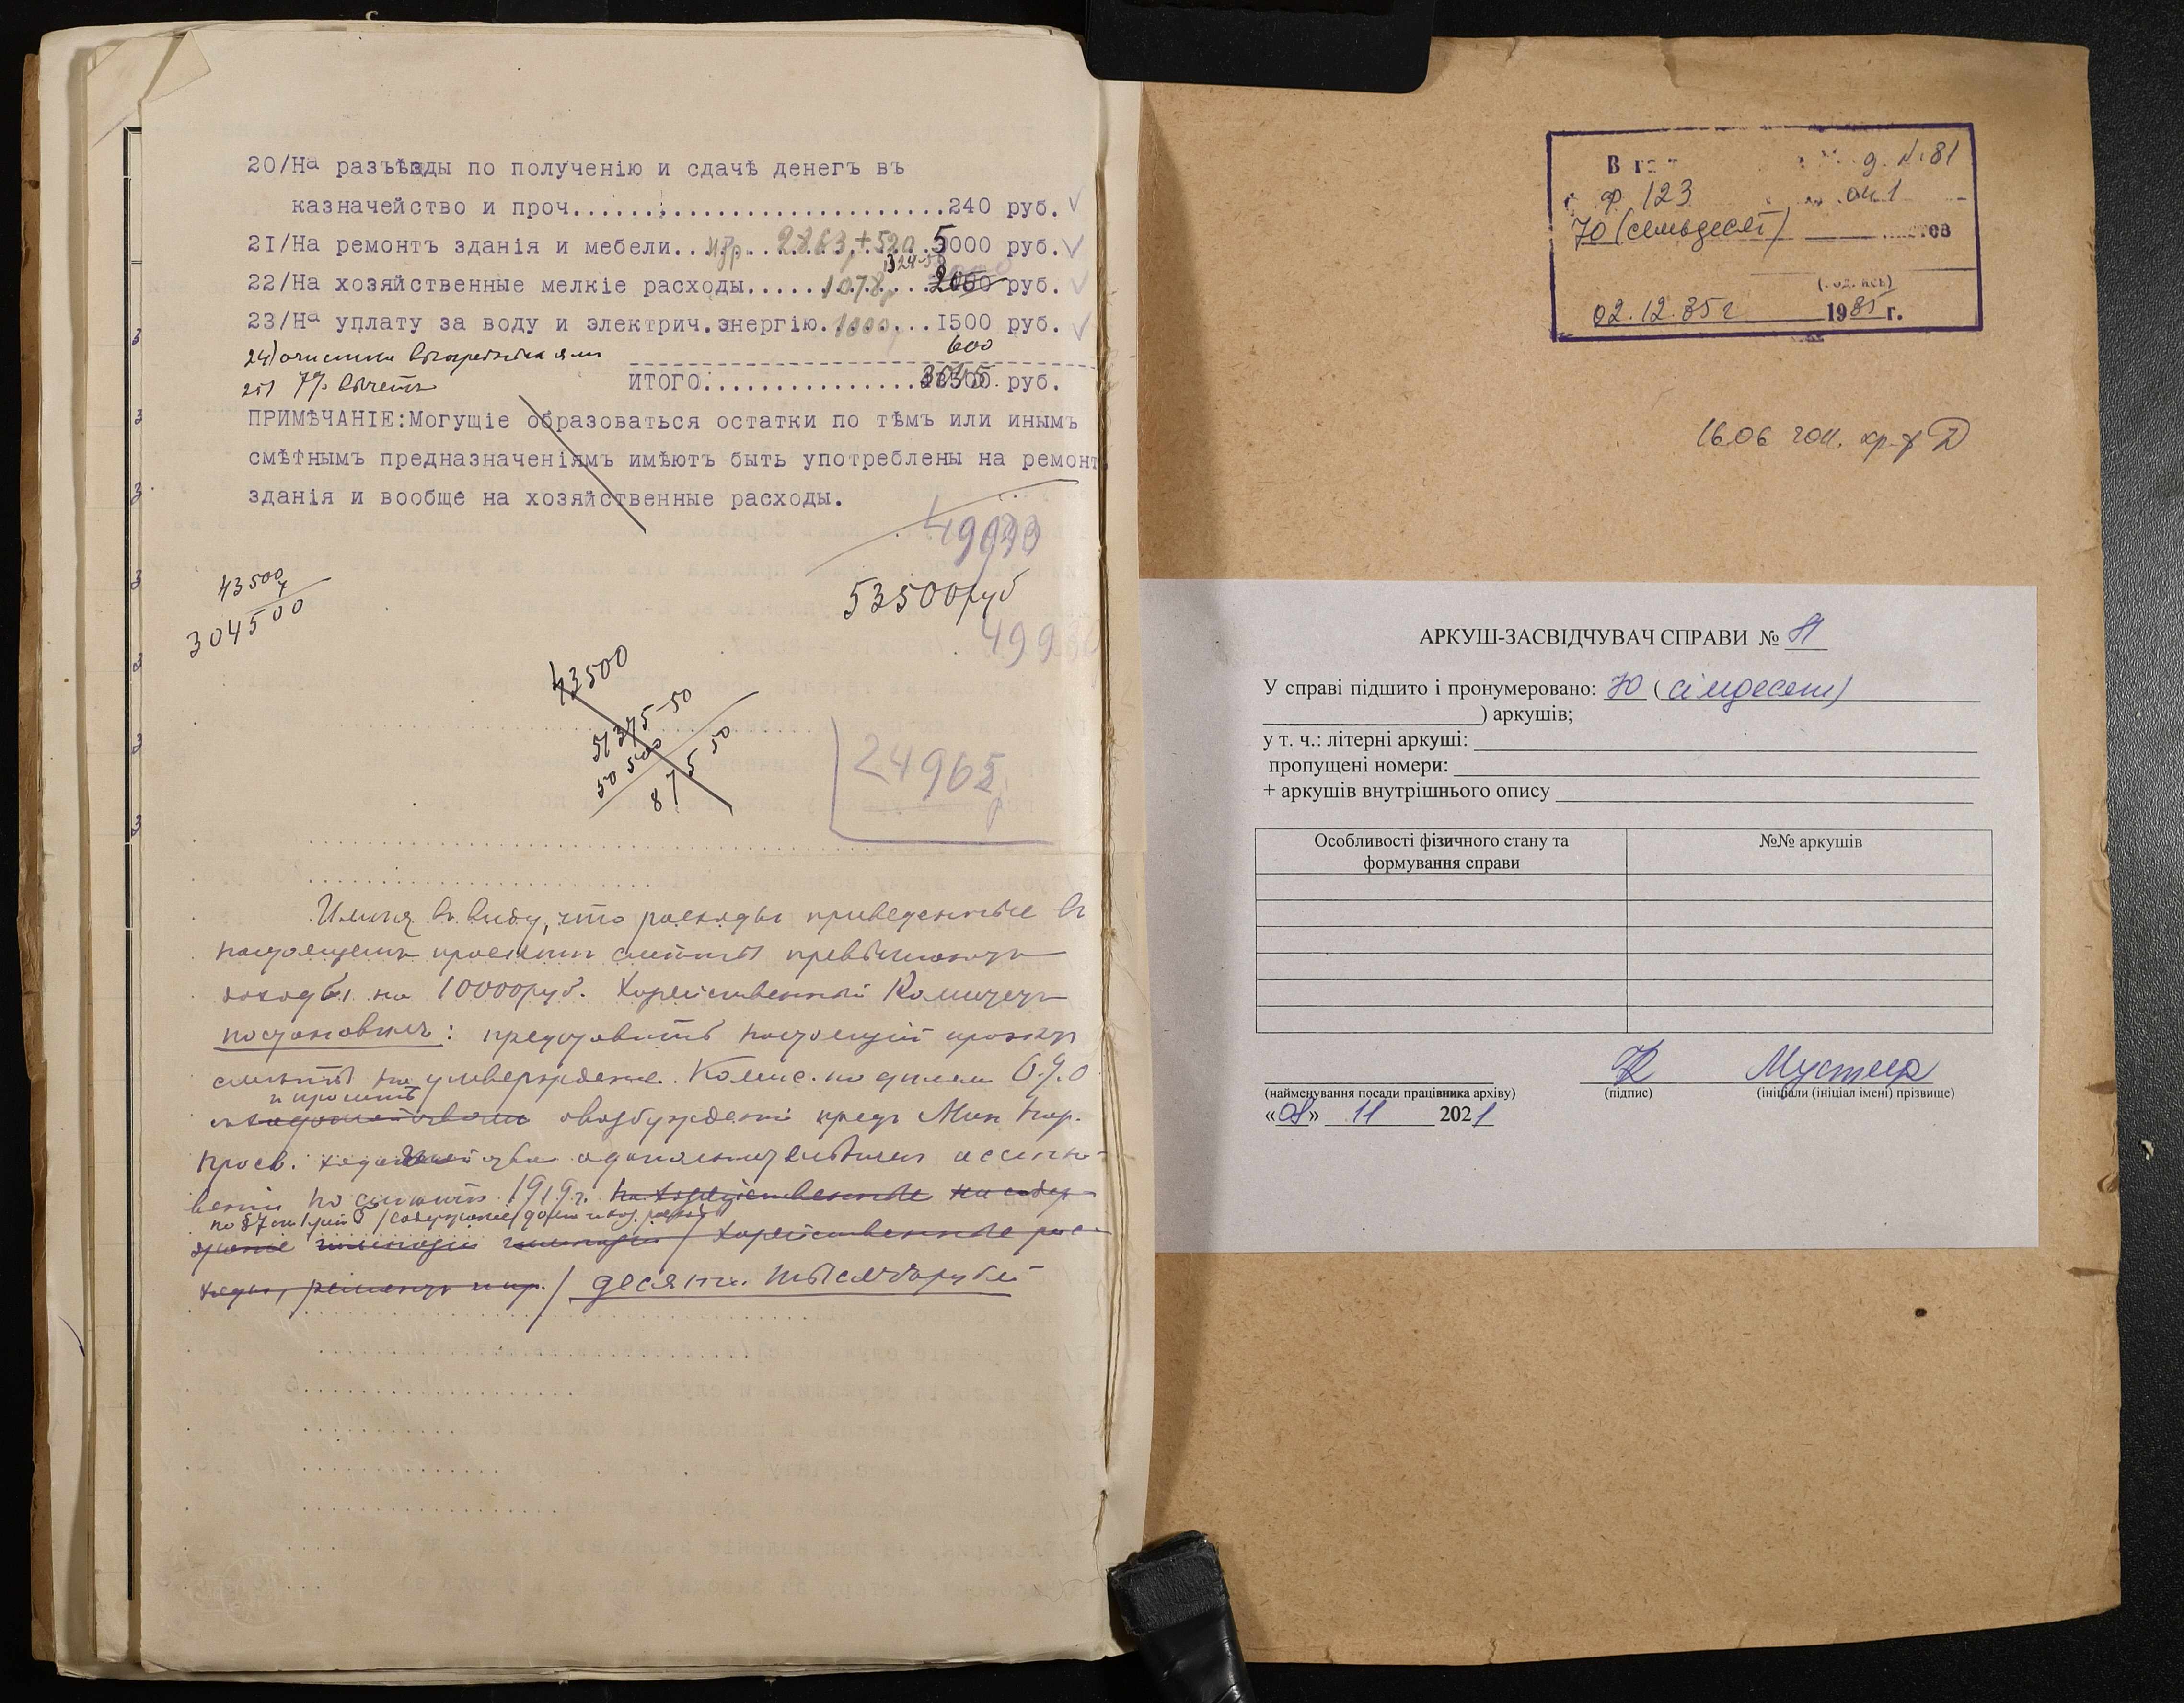 20/На разъѣзды по полученію и сдачѣ денегъ въ
казначейство и проч..........................240 руб.
21/На ремонтъ зданія и мебели.. 2883,+520 5000 руб.
1324-50
22/На хозяйственные мелкіе расходы..... 1078 2000 руб.
23/На уплату за воду и электрич.энергію. 1000 ..1500 руб.
24) очистка выгребныхъ ямъ 600
25) 7% вычетъ 3045
ИТОГО................ руб.
ПРИМѢЧАНІЕ:Могущіе образоваться остатки по тѣмъ или инымъ
смѣтнымъ предназначеніямъ имѣютъ быть употреблены на ремонтъ
зданія и вообще на хозяйственные расходы.
43500
7
304500
53500 руб
43500
51375-50
50500
875 50
24965
Имѣя въ виду, что расходы приведенные въ
настоящемъ проектѣ смѣты превышаютъ
доходы на 10000 руб. Хозяйственный Комитетъ
постановилъ: представить настоящій проектъ
смѣты на утвержденіе. Комис. по дѣламъ О.У.О
и проситъ
ходатайствомъ о возбужденіи предъ Мин Нар.
Просв. ходатайства о дополнительномъ ассигно-
ваніи по смѣтѣ 1919 г. на хозяйственные на содер-
по §7 ст 1
жаніе гимназіи хозяйственные рас-
ходы, ремонтъ и пр. / десяти тысячъ рублей
д. N. 81
Ф. 123 оп 1
70 (семьдесят)
02.12.85 г 1985 г.
16.06 2011.
АРКУШ-ЗАСВІДЧУВАЧ СПРАВИ № 81
У справі підшито і пронумеровано: 70 (сімдесят)
) аркушів;
у т. ч.: літерні аркуші:
пропущені номери:
+ аркушів внутрішнього опису
Особливості фізичного стану та
формування справи
№№ аркушів
(найменування посади працівника архіву) (підпис) (ініціали (ініціал імені) прізвище)
«08» 11 2021